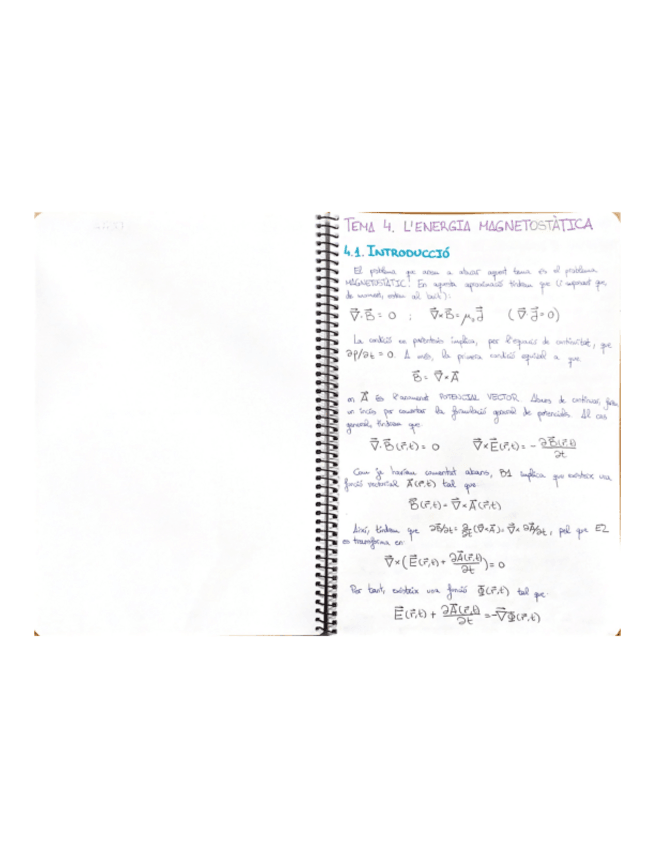 TEMA 4. L'ENERGIA MAGNETOSTÀTICA
4.1. INTRODUCCIÓ
El problema que anem a atacar aquest tema és el problema
MAGNETOSTÀTIC. En aquesta aproximació tindrem que (i suposant que,
de moment, estem al buit):
∇·B = 0 ; ∇×B = μ₀J (∇·J = 0)
La condició en parèntesis implica, per l'equació de continuïtat, que
∂ρ/∂t = 0. A més, la primera condició equival a que
B = ∇×A
on A és l'anomenat POTENCIAL VECTOR. Abans de continuar farem
un incís per comentar la formulació general de potencials. Al cas
general, tindrem que
∇·B(r,t) = 0 ∇×E(r,t) = - ∂B(r,t)/∂t
Com ja havíem comentat abans, B1 implica que existeix una
funció vectorial A(r,t) tal que
B(r,t) = ∇×A(r,t)
Així, tindrem que ∂B/∂t = ∂/∂t(∇×A) = ∇×∂A/∂t, pel que E2
es transforma en:
∇×(E(r,t) + ∂A(r,t)/∂t) = 0
Per tant, existeix una funció Φ(r,t) tal que
E(r,t) + ∂A(r,t)/∂t = -∇Φ(r,t)